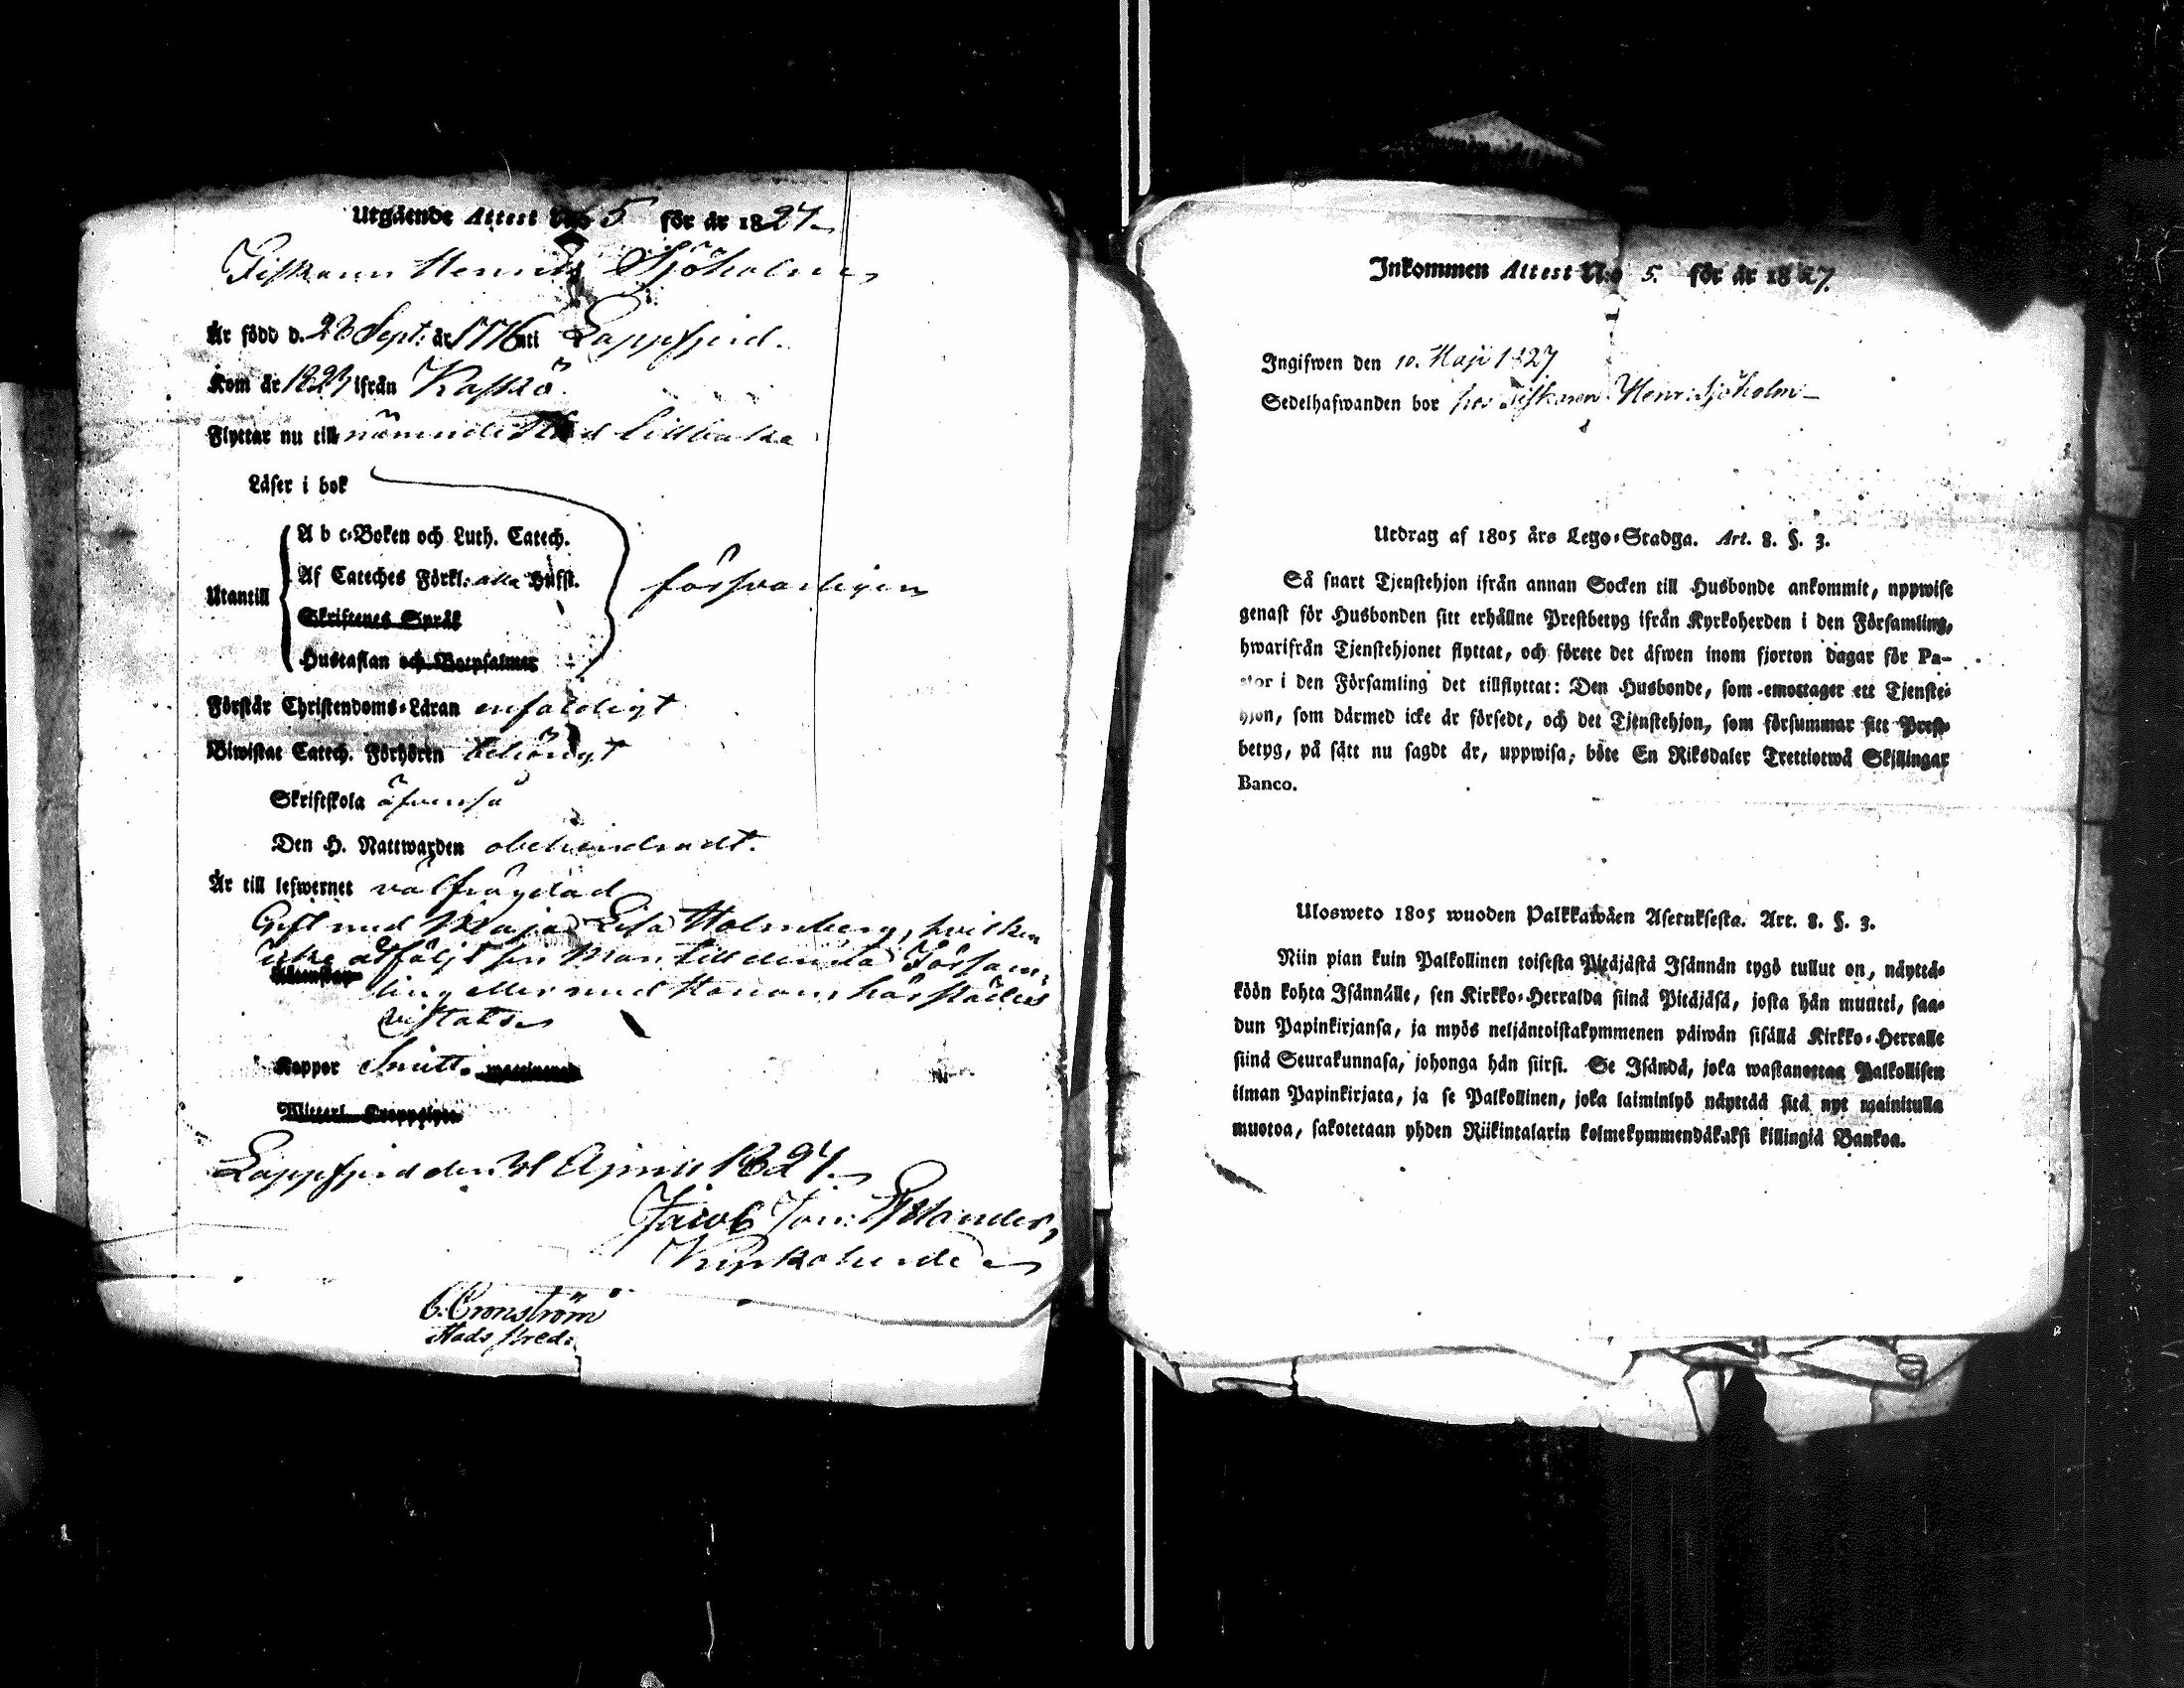 Utgående Attest N:o 5 för år 1827
Fiskaren Henric Sjöholm
Är född d. 23 Sept. år 1776 uti Lappfjerd.
Kom år 1824 ifrån Kaskö
Flyttar nu till nämnde Stad tillbaka
Läser i bok
A b c-Boken och Luth. Catech.
Af Cateches Förkl. alla Hufst.
Utantill
försvarligen
Skriftenes Språk
Hustaflan och Botpsalmer
Förstår Christendoms-Läran enfaldigt
Biwistat Catech. Förhören behörigt
Skriftskola äfvenså
Den H. Nattwarden obehindradt.
Är till lefwernet välfrägdad
Gift med Maja Lisa Holmberg, hvilken
icke åtföljt sin Man till denna Församl-
ling eller med honom härstädes
vistats
Koppor Smitt.
Lappfjerd den 31 April 1827
Jacob Joh:
Kyrkoherde
C. Cronström
Stads pred:
Inkommen Attest N:o 5. för år 1827.
Ingifwen den 10. Maji 1827
Sedelhafwanden bor hos Fiskaren Henr: Sjöholm
Utdrag af 1805 års Lego-Stadga. Art. 8. §. 3.
Så snart Tjenstehjon ifrån annan Socken till Husbonde ankommit, uppwise
genast för Husbonden sitt erhållne Prestbetyg ifrån Kyrkoherden i den Församling,
hwarifrån Tjenstehjonet flyttat, och förete det äfwen inom fjorton dagar för Pa-
stor i den Församling det tillflyttat: Den Husbonde, som emottager ett Tjenste-
hjon, som därmed icke är försedt, och det Tjenstehjon, som försummar sitt Prest-
betyg, på sätt nu sagdt är, uppwisa, böte En Riksdaler Trettiotwå Skillingar
Banco.
Ulosweto 1805 wuoden Palkkawäen Asetuksesta. Art. 8. §. 3.
Niin pian kuin Palkollinen toisesta Pitäjästä Isännän tygö tullut on, näyttä-
köön kohta Isännälle, sen Kirkko-Herralda siinä Pitäjäsä, josta hän muutti, saa-
dun Papinkirjansa, ja myös neljäntoistakymmenen päiwän sisällä Kirkko-Herralle
siinä Seurakunnasa, johonga hän siirsi. Se Isändä, joka wastanottaa Palkollisen
ilman Papinkirjata, ja se Palkollinen, joka laiminlyö näyttää sitä nyt mainitulla
muotoa, sakotetaan yhden Riikintalarin kolmekymmendäkaksi killingiä Bankoa.